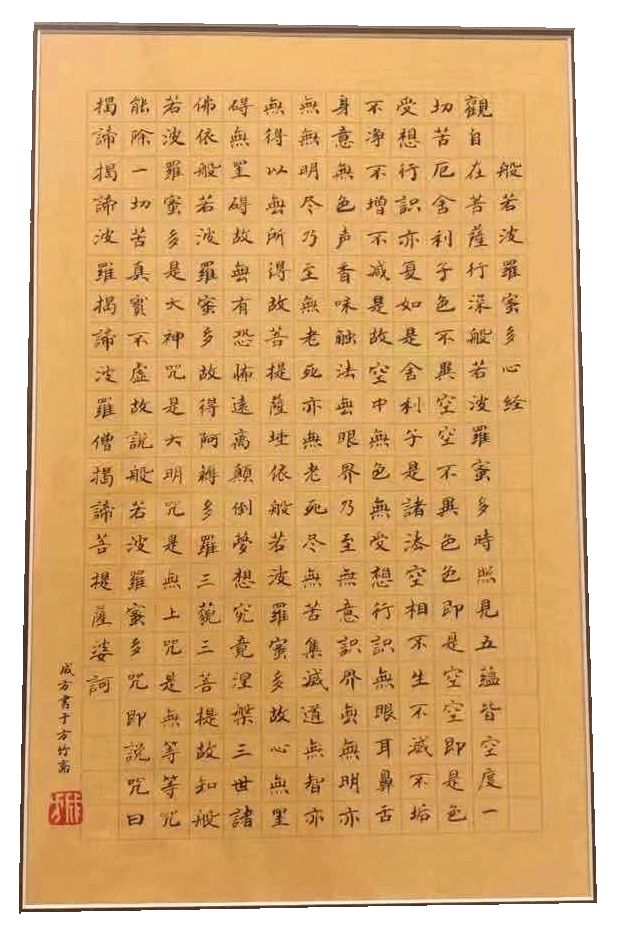 般若波羅蜜多心経
觀自在菩薩行深般若波羅蜜多時照見五蘊皆空度一
切苦厄舍利子色不異空空不異色色即是空空即是色
受想行識亦复如是舍利子是諸法空相不生不滅不垢
不净不增不减是故空中無色無受想行識無眼耳鼻舌
身意無色声香味触法無眼界乃至無意識界無無明亦
無無明尽乃至無老死亦無老死尽無苦集滅道無智亦
無得以無所得故菩提薩埵依般若波羅蜜多故心無罣
碍無罣碍故無有恐怖遠离顛倒夢想究竟涅槃三世諸
佛依般若波羅蜜多故得阿耨多羅三藐三菩提故知般
若波羅蜜多是大神咒是大明咒是無上咒是無等等咒
能除一切苦真實不虚故説般若波羅蜜多咒即説咒曰
揭諦揭諦波羅揭諦波羅僧揭諦菩提薩婆訶
成方書于方竹斋